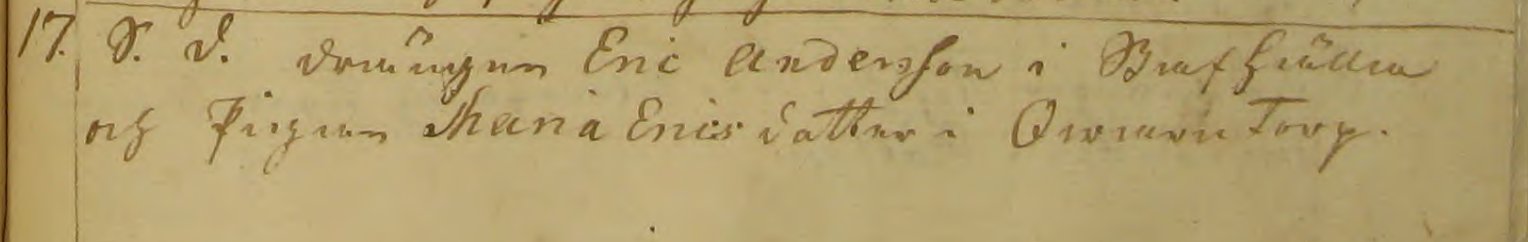 17. S. D. Drängen Eric Andersson i
och Pigan Maria Erics dotter i Torp.